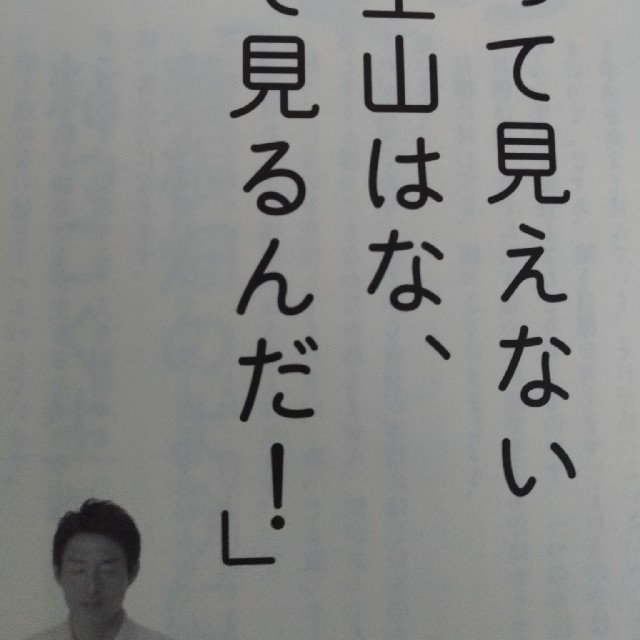 て見えない
山はな、
見るんだ！」